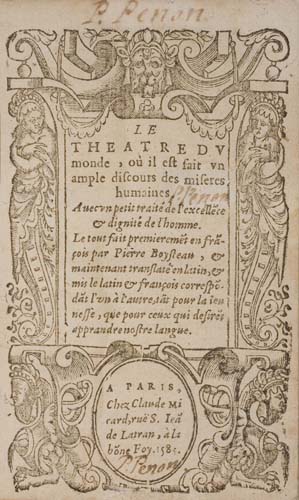 P. Penon.
LE
THEATRE DV
monde, où il est fait vn
ample discours des miseres
humaines.
P. Penon
Auec vn petit traité de l'excellẽce
& dignité de l'homme.
Le tout fait premieremẽt en frã-
çois par Pierre Boysteau, &
maintenant translaté en latin, &
mis le latin & françois correspõ-
dãt l'vn à l'autre, tãt pour la ieu-
nesse, que pour ceux qui desirẽt
apprandre nostre langue.
A PARIS,
Chez Claude Mi
card, ruë S. Ieã
de Latran, à la
bõne Foy. 1585.
P. Penon